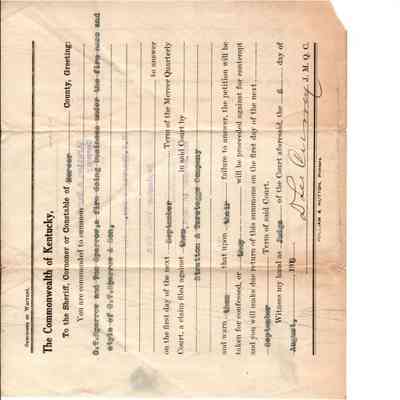 SUMMONS ON WARRANT.
The Commonwealth of Kentucky,
To the Sheriff, Coroner or Constable of Mercer County, Greeting:
You are commanded to summon
G.T.Sparrow and Son Sparrow, a firm doing business under the firm name and
style of G.T.Sparrow & Son,
to answer
on the first day of the next September Term of the Mercer Quarterly
Court, a claim filed against them in said Court by
Stratton & Terstegge Company
and warn them that upon their failure to answer, the petition will be
taken for confessed, or they will be proceeded against for contempt
and you will make due return of this summons on the first day of the next
September Term of said Court.
Witness my hand as Judge of the Court aforesaid, the 6 day of
August, 191
J. M. Q. C.